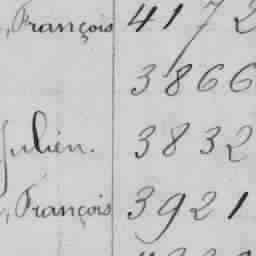 , François 4172
3866
Julien. 3832
, François 3921